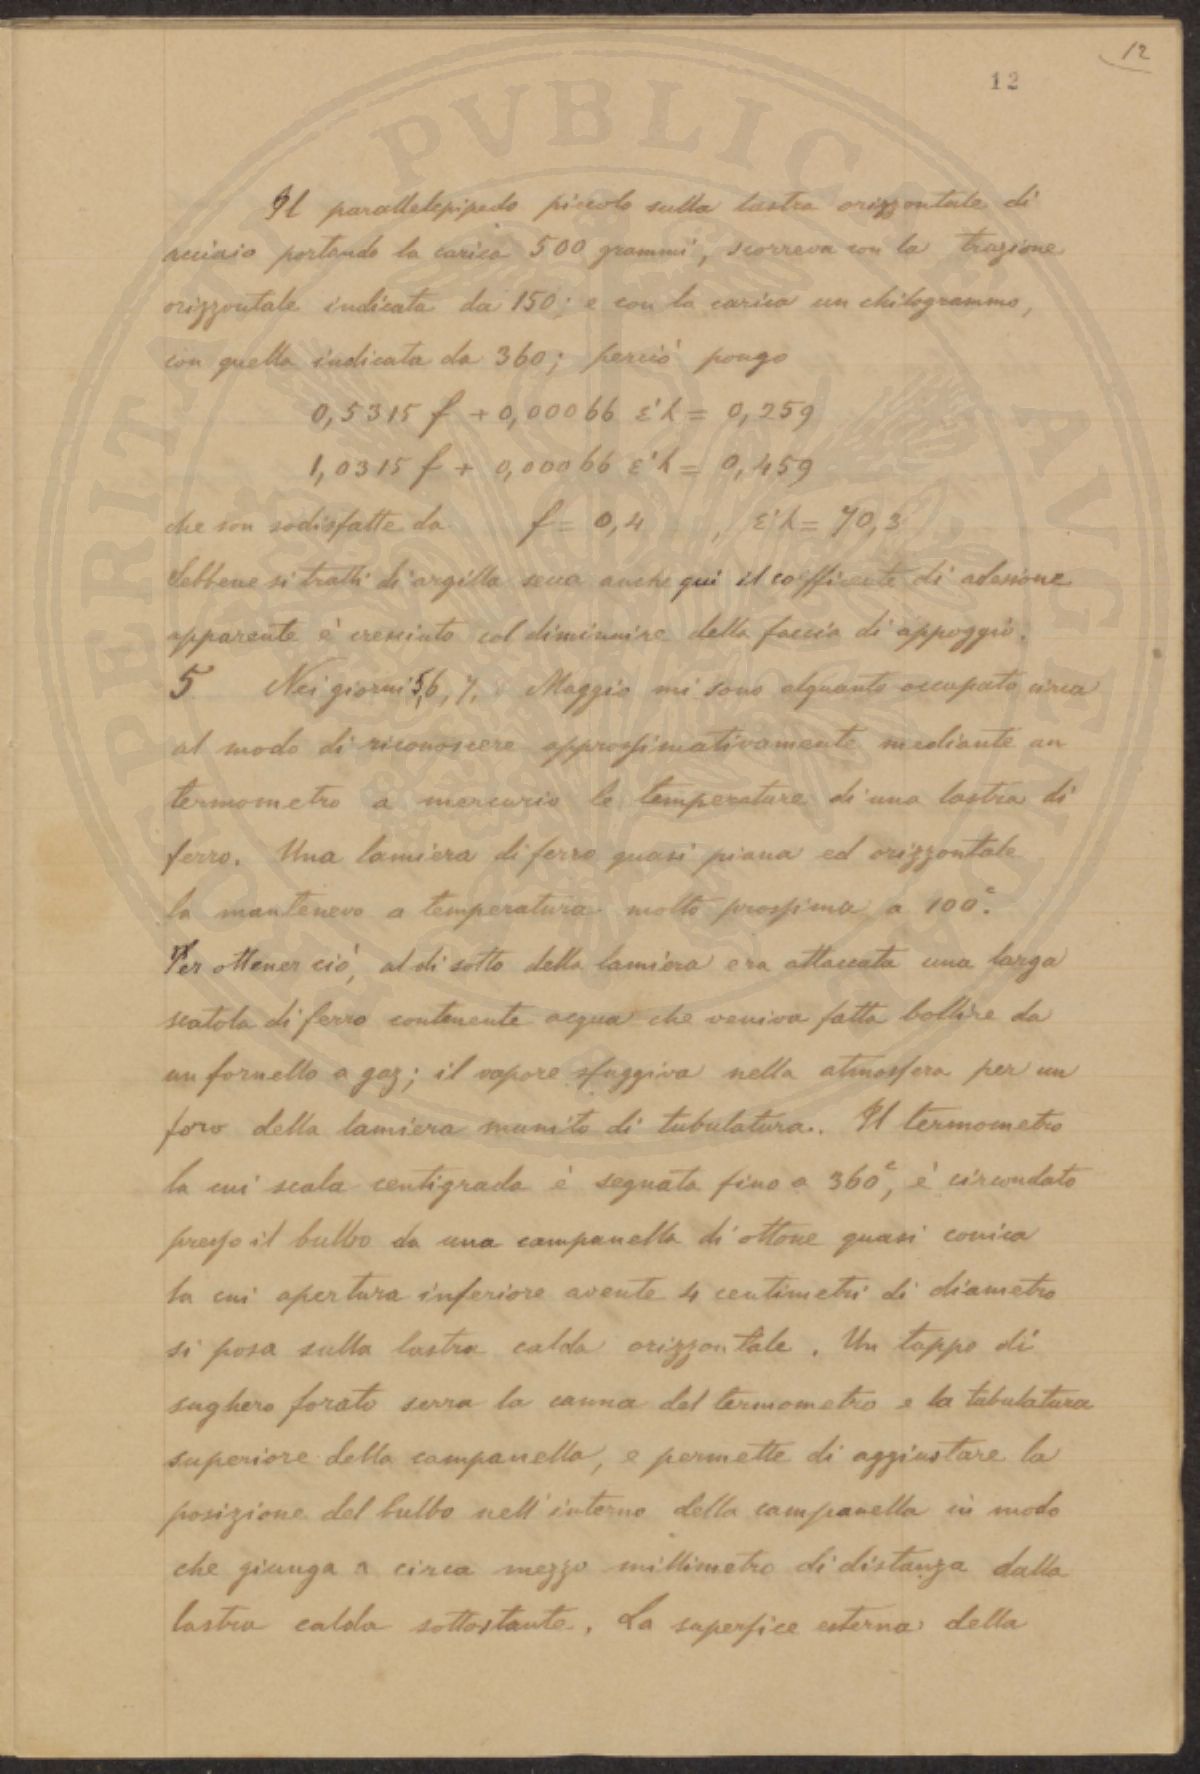 12
12
Il parallelepipedo piccolo sulla lastra orizzontale di
acciaio portando la carica 500 grammi, scorreva con la trazione
orizzontale indicata da 150; e con la carica un chilogrammo,
con quella indicata da 360; perciò pongo
0,5315 f + 0,00066 ε'λ = 0,259
1,0315 f + 0,00066 ε'λ = 0,459
che son sodisfatte da f = 0,4 , ε'λ = 70,3
Sebbene si tratti di argilla secca anche qui il coefficente di adesione
apparente è cresciuto col diminuire della faccia di appoggio.
5 Nei giorni 5,6,7, Maggio mi sono alquanto occupato circa
al modo di riconoscere approssimativamente mediante un
termometro a mercurio le temperature di una lastra di
ferro. Una lamiera di ferro quasi piana ed orizzontale
la mantenevo a temperatura molto prossima a 100°.
Per ottener ciò, al di sotto della lamiera era attaccata una larga
scatola di ferro contenente acqua che veniva fatta bollire da
un fornello a gaz; il vapore sfuggiva nella atmosfera per un
foro della lamiera munito di tubulatura. Il termometro
la cui scala centigrada è segnata fino a 360°, è circondato
presso il bulbo da una campanella di ottone quasi conica
la cui apertura inferiore avente 4 centimetri di diametro
si posa sulla lastra calda orizzontale. Un tappo di
sughero forato serra la canna del termometro e la tubulatura
superiore della campanella, e permette di aggiustare la
posizione del bulbo nell'interno della campanella in modo
che giunga a circa mezzo millimetro di distanza dalla
lastra calda sottostante. La superfice esterna della
PERITA PVBLICA AVGEN